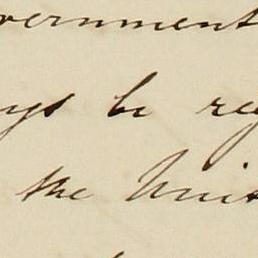 vernment
ys be reg
the Unit